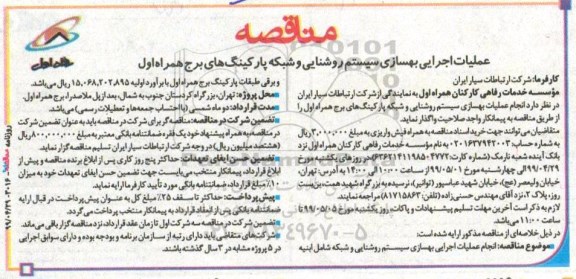 مناقصه
همراه اول
عملیات اجرایی بهسازی سیستم روشنایی و شبکه پارکینگ‌های برج همراه اول
کارفرما: شرکت ارتباطات سیار ایران
مؤسسه خدمات رفاهی کارکنان همراه اول به نمایندگی از شرکت ارتباطات سیار ایران
در نظر دارد انجام عملیات بهسازی سیستم روشنایی و شبکه پارکینگ های برج همراه اول را
از طریق مناقصه به پیمانکار واجد صلاحیت واگذار نماید.
متقاضیان می‌توانند جهت خرید اسناد مناقصه به همراه فیش واریزی به مبلغ ۳,۰۰۰,۰۰۰ ریال
به شماره حساب ۰۲۰۱۶۳۷۹۴۲۰۰۳ به نام مؤسسه خدمات رفاهی کارکنان همراه اول نزد
بانک آینده شعبه نارمک (شماره کارت: ) در روزهای یکشنبه مورخ
۹۹/۰۴/۲۹ الی چهارشنبه مورخ ۹۹/۰۵/۰۱ از ساعت ۱۰:۰۰ الی ۱۴:۰۰ به آدرس: تهران،
خیابان ولیعصر (عج)، خیابان شهید عباسپور (توانیر)، نرسیده به بزرگراه شهید همت، بن‌بست
روژ، پلاک ۲، نزد آقای مهندس حسنی‌زاده (تلفن: ۸۱۷۱۵۸۶۳) مراجعه نمایند.
لازم به ذکر است آخرین مهلت تسلیم پیشنهادات و پاکات، روز یکشنبه مورخ ۹۹/۰۵/۰۵ تا
ساعت ۱۱:۰۰ می‌باشد.
در ذیل خلاصه‌ای از مناقصه مذکور ارایه شده است:
موضوع مناقصه: انجام عملیات اجرایی بهسازی سیستم روشنایی و شبکه شامل ابنیه
و برقی طبقات پارکینگ برج همراه اول با برآورد اولیه ۱۵,۰۶۸,۲۰۲,۸۹۵ ریال می‌باشد.
محل پروژه: تهران، بزرگراه کردستان جنوب به شمال، بعد از پل ملاصدرا، برج همراه اول.
مدت قرارداد: دو ماه شمسی (با احتساب جمعه‌ها و تعطیلات رسمی) می‌باشد.
تضمین شرکت در مناقصه: مناقصه‌گر برای شرکت در مناقصه باید به عنوان تضمین شرکت
در مناقصه به همراه پیشنهاد خود یک فقره ضمانتنامه بانکی معتبر به مبلغ ۸۰۰,۰۰۰,۰۰۰ ریال
(هشتصد میلیون ریال) در وجه شرکت ارتباطات سیار ایران تسلیم مناقصه گزار نماید.
تضمین حسن ایفای تعهدات: حداکثر پنج روز کاری پس از ابلاغ برنده مناقصه و پیش از
ابلاغ قرارداد، پیمانکار منتخب می‌بایست جهت تضمین حسن ایفای تعهدات خود به میزان
۱۰٪ مبلغ قرارداد، ضمانتنامه بانکی مورد تأیید کارفرما ارایه نماید.
پیش‌پرداخت: حداکثر تا سقف ۲۵٪ مبلغ کل به عنوان پیش‌پرداخت در قبال ارایه
ضمانتنامه بانکی پس از انعقاد قرارداد به پیمانکار منتخب پرداخت می‌گردد.
تضمین شرکت در مناقصه به شرکت اول تا زمان عقد قرارداد، نزد مناقصه گزار باقی می‌ماند.
شرکت‌های متقاضی باید دارای رتبه از سازمان برنامه و بودجه بوده و دارای سوابق اجرایی
در ۵ پروژه مشابه در ۳ سال گذشته باشند.
روزنامه
۹۹/۰۴/۲۹